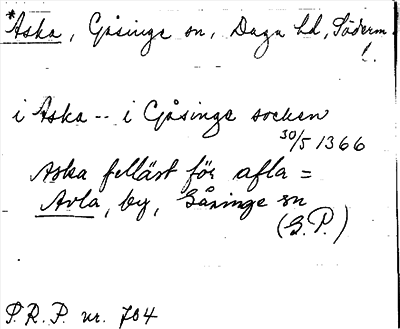 *Aska, Gåsinge sn, Daga hd, Söderm.
l.
i Aska -- i Gåsinge socken
30/5 1366
Aska felläst för afla =
Avla, by, Gåsinge sn
(G.P.)
P.R.P. nr. 704